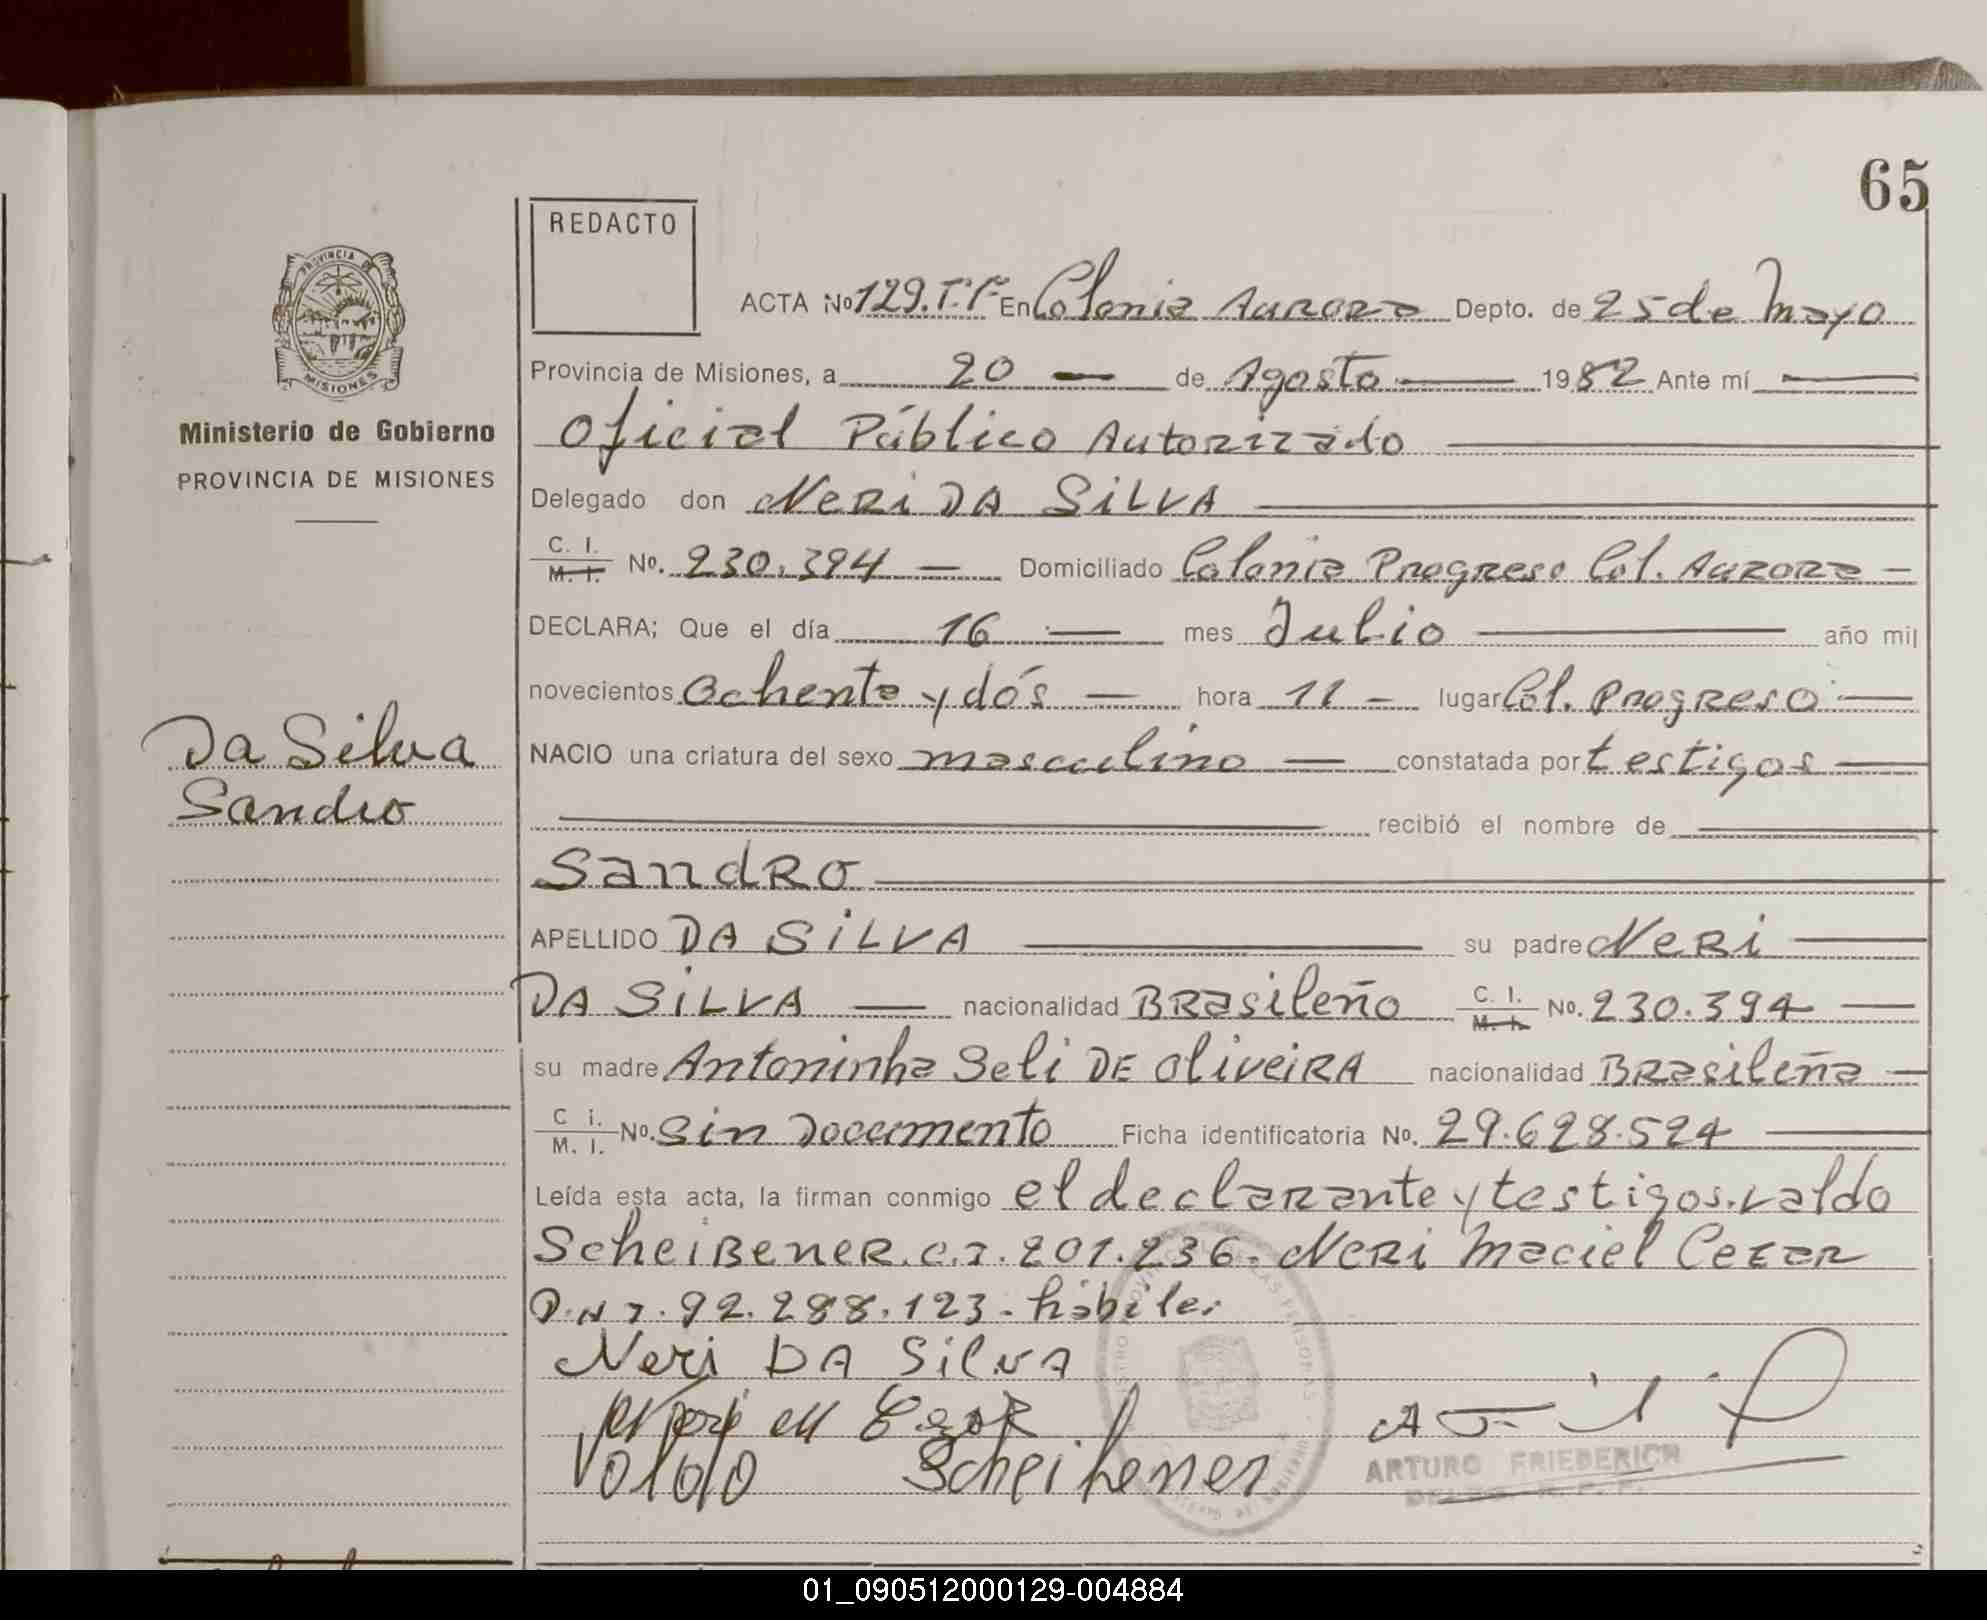 65
REDACTO
PROVINCIA DE
MISIONES
Ministerio de Gobierno
PROVINCIA DE MISIONES
Da Silva
Sandro
ACTA No 129. Tº 1º En Colonia Aurora Depto. de 25 de Mayo
Provincia de Misiones, a 20 — de Agosto — 1982 Ante mí —
Oficial Público Autorizado —
Delegado don Neri DA SiLVA —
C. I.
M. I. No. 230.394 — Domiciliado Colonia Progreso Col. Aurora —
DECLARA; Que el día 16 — mes Julio — año mil
novecientos Ochenta y dós — hora 11 — lugar Col. Progreso —
NACIO una criatura del sexo masculino — constatada por testigos —
— recibió el nombre de —
SandRo —
APELLIDO DA SiLVA — su padre NeRi —
DA SiLVA — nacionalidad BRasileño C. I.
M. I. No. 230.394 —
su madre Antoninha Seli DE OliveiRA nacionalidad BRasileña —
C i.
M. I. No. Sin Documento Ficha identificatoria No. 29.628.524 —
Leída esta acta, la firman conmigo el declarante y testigos. Valdo
ScheiBeneR. C.I. 201.236. NeRi Maciel Cezar
D.N I. 92.288.123 - hábiles
Neri DA SilVA
Scheibener
ARTURO FRIEDERICH
01_090512000129-004884